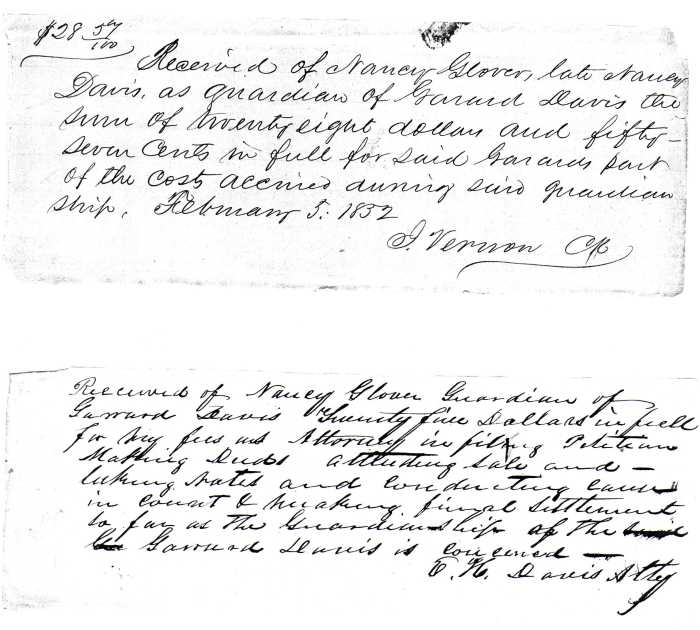 $28 57/100
Received of Nancy Glover, late Nancy
Davis, as guardian of Garard Davis the
sum of twenty eight dollars and fifty-
seven Cents in full for said Garards part
of the costs accrued during said guardian
ship, February 5: 1852
J. Vernon Clk
Received of Nancy Glover Guardian of
Garrard Davis Twenty five Dollars in full
for my fees as Attorney in filing Petition
Making Deeds attending sale and -
taking Notes and conducting cause
in court & making final settlement
so far as the Guardianship of the said
Garrard Davis is concerned -
E. H. Davis Atty